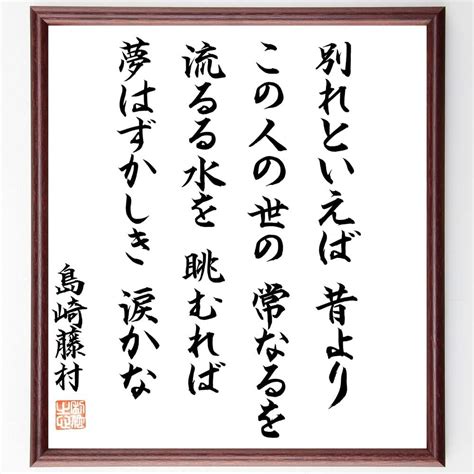 別れといえば 昔より
この人の世の 常なるを
流るる水を 眺むれば
夢はずかしき 涙かな
島崎藤村